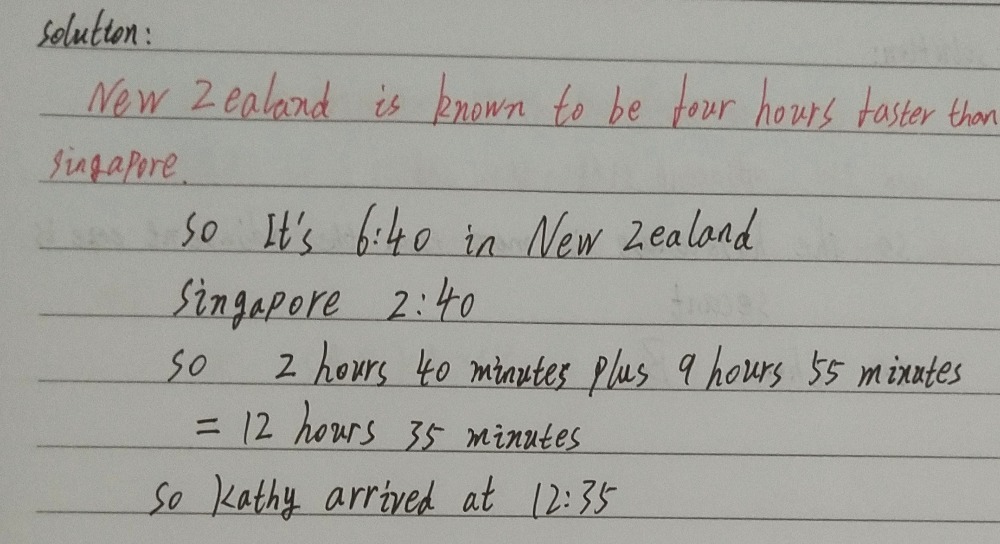 solution:
New Zealand is known to be four hours faster than
singapore.
so It's 6:40 in New Zealand
singapore 2:40
so 2 hours 40 minutes plus 9 hours 55 minutes
= 12 hours 35 minutes
so kathy arrived at 12:35